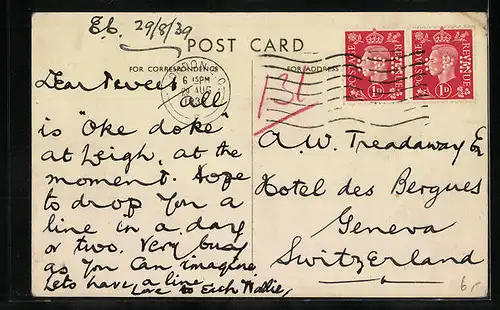 Eb. 29/8/39
POST CARD
FOR CORRESPONDENCE
FOR ADDRESS
6 15PM
29 AUG
POSTAGE REVENUE
1D
POSTAGE REVENUE
1D
131
Dear
all
is "Oke doke"
at Leigh, at the
moment. Hope
to drop you a
line in a day
or two. Very busy
as you can imagine
Lets have a line.
Love to each Wallie,
A.W. Treadaway Eq
Hotel des Bergues
Geneva
Switzerland